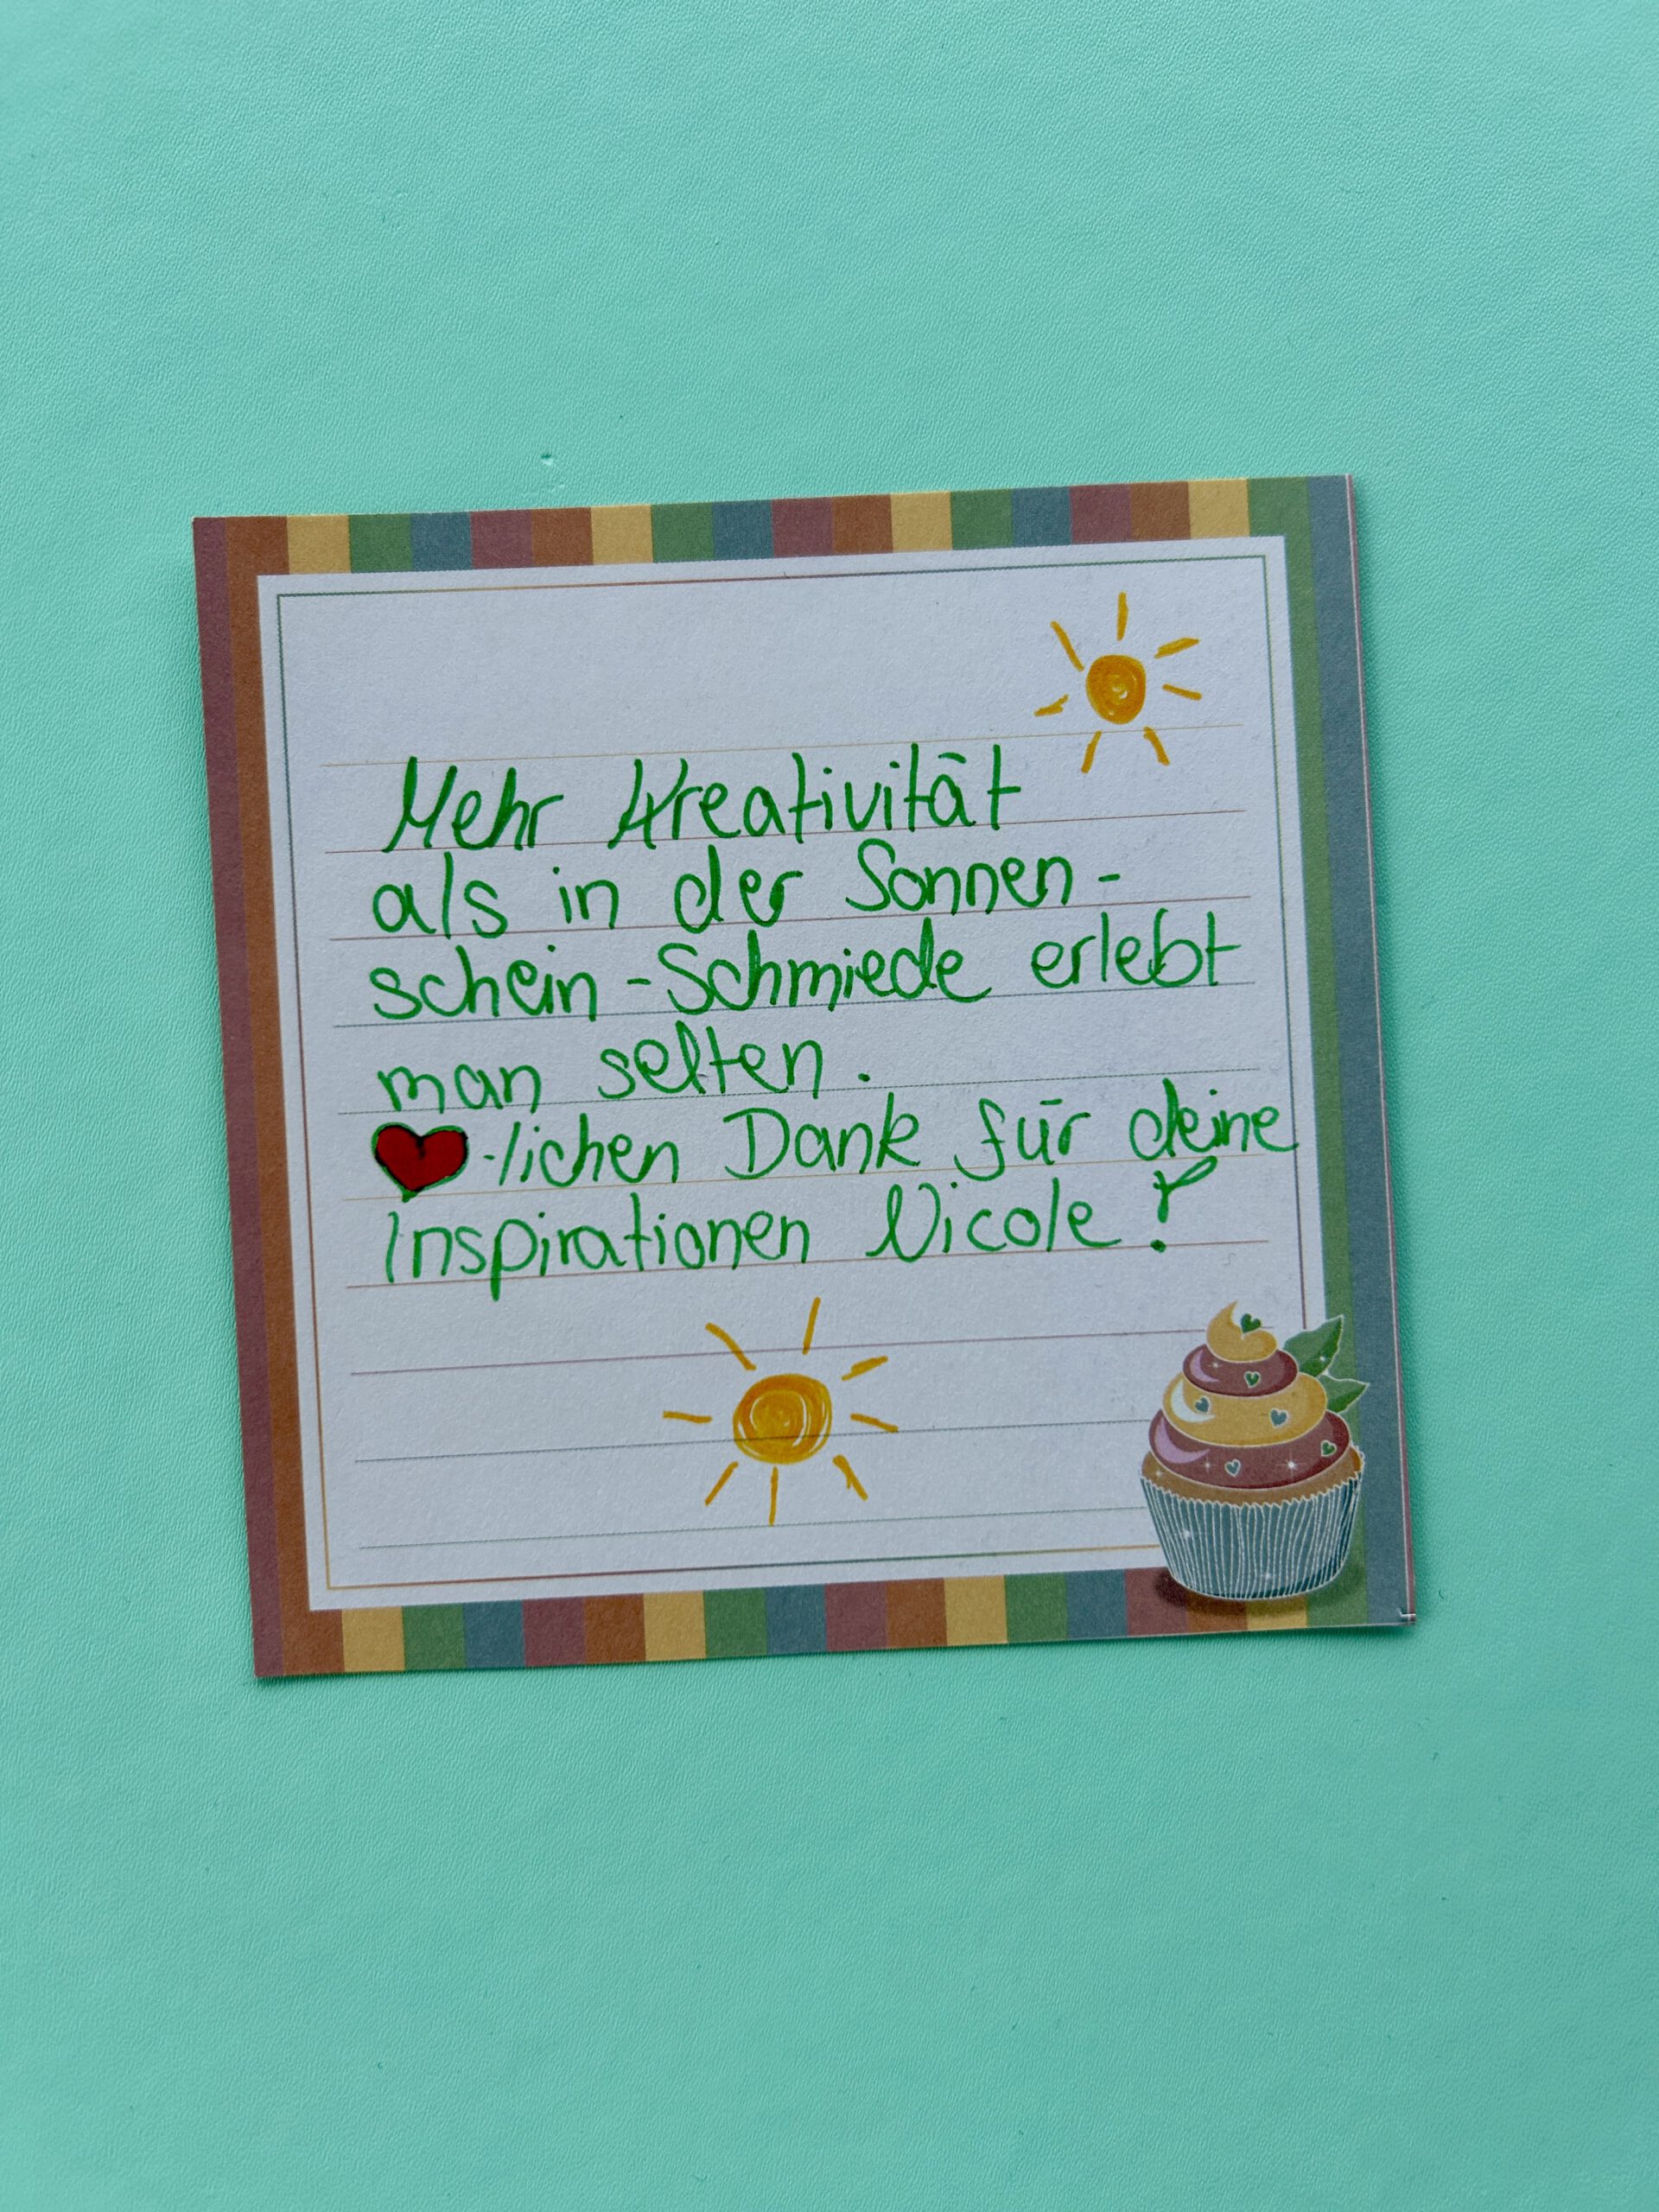 Mehr Kreativität
als in der Sonnen-
schein-Schmiede erlebt
man selten.
❤-lichen Dank für deine
Inspirationen Nicole!